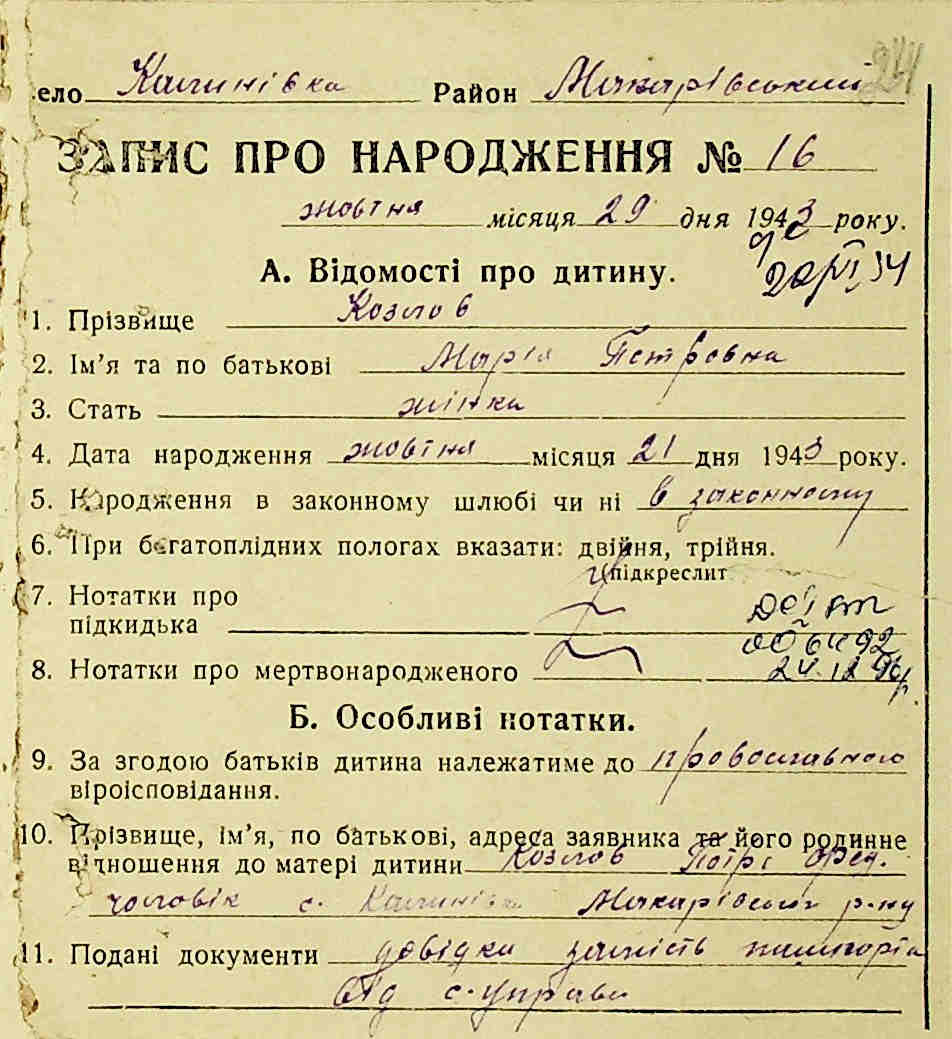 241
ело Калинівка Район Макарівський
ЗАПИС ПРО НАРОДЖЕННЯ № 16
жовтня місяця 29 дня 1943 року.
А. Відомості про дитину.
1. Прізвище Козлов
2. Ім’я та по батькові Марія Петровна
3. Стать жінка
4. Дата народження жовтня місяця 21 дня 1943 року.
5. Народження в законному шлюбі чи ні в законному
6. При багатоплідних пологах вказати: двійня, трійня.
(підкреслит
7. Нотатки про
підкидька
8. Нотатки про мертвонародженого
Б. Особливі нотатки.
9. За згодою батьків дитина належатиме до православного
віроісповідання.
10. Прізвище, ім’я, по батькові, адреса заявника та його родинне
відношення до матері дитини Козлов Петро
чоловік с. Калинівка Макарівський р-ну
11. Подані документи довідка замість пашпорта
від с. управи